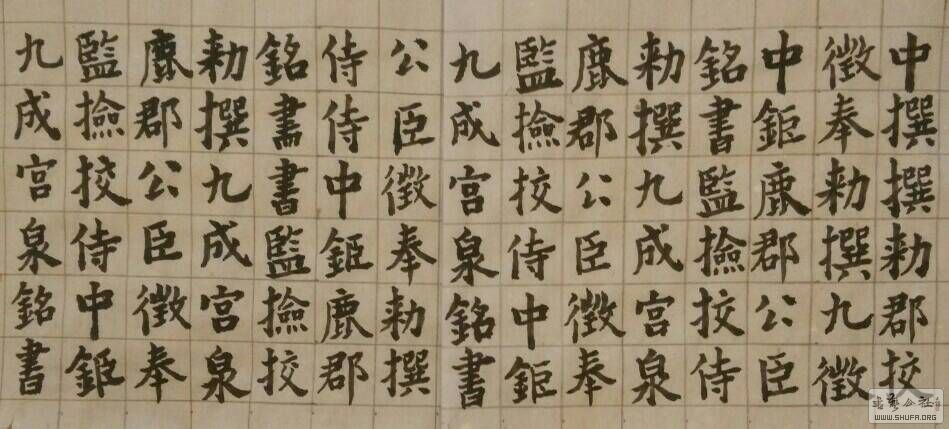 九成宮泉銘書
監撿挍侍中鉅
鹿郡公臣徵奉
勅撰九成宮泉
銘書書監撿挍
侍侍中鉅鹿郡
公臣徵奉勅撰
九成宮泉銘書
監撿挍侍中鉅
鹿郡公臣徵奉
勅撰九成宮泉
銘書監撿挍侍
中鉅鹿郡公臣
徵奉勅撰九徵
中撰撰勅郡挍
WWW.SHUFA.ORG